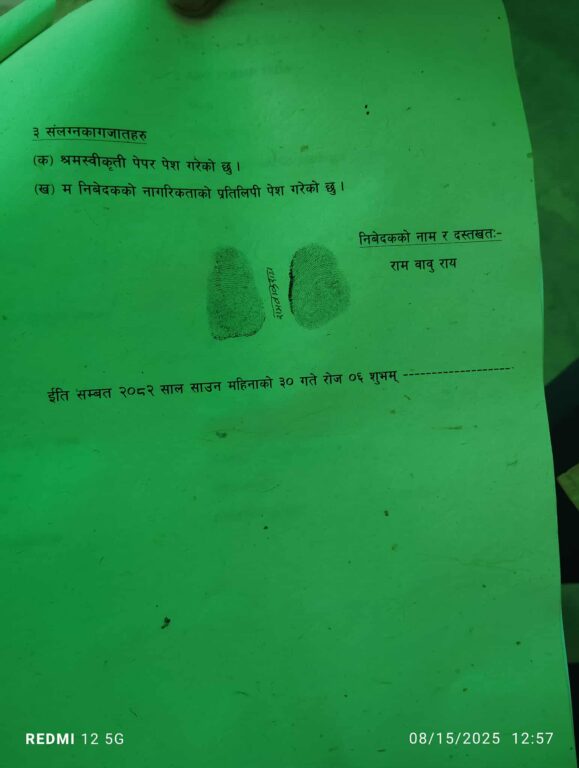 ३ संलग्नकागजातहरु
(क) श्रमस्वीकृती पेपर पेश गरेको छु ।
(ख) म निबेदकको नागरिकताको प्रतिलिपी पेश गरेको छु ।
निबेदकको नाम र दस्तखतः-
राम वावु राय
ईति सम्बत २०८२ साल साउन महिनाको ३० गते रोज ०६ शुभम् --------------------
REDMI 12 5G
08/15/2025 12:57